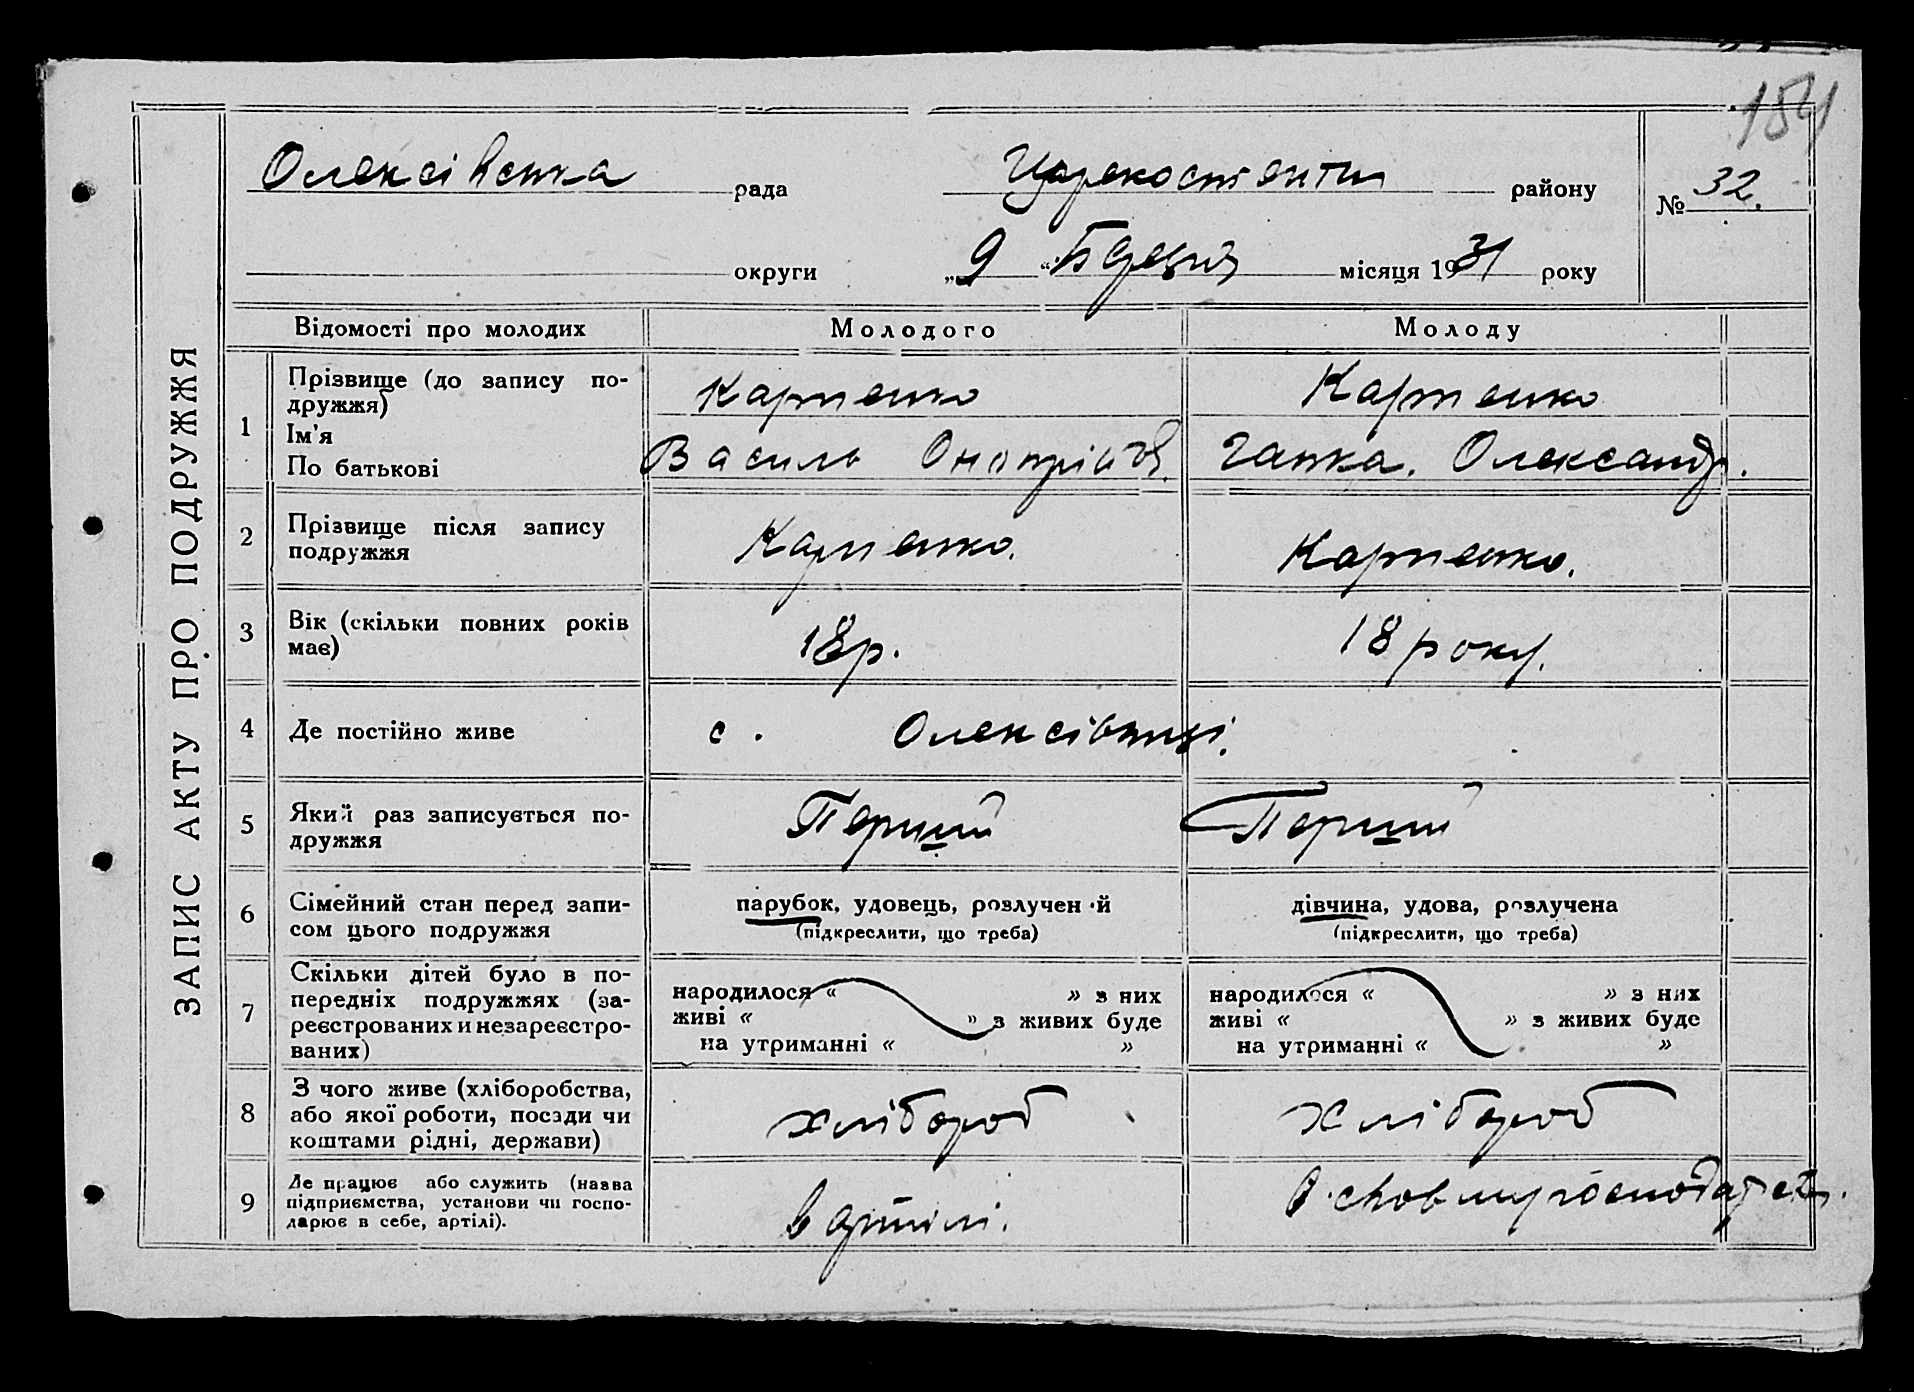 184
Олексівська рада
Царекостянти району
№ 32.
округи
„9“ місяця 1931 року
ЗАПИС АКТУ ПРО ПОДРУЖЖЯ
Відомості про молодих
Молодого
Молоду
1
Прізвище (до запису по-
дружжя)
Ім'я
По батькові
Карпенко
Василь Онопріів.
Карпенко
Гапка. Олександр.
2
Прізвище після запису
подружжя
Карпенко.
Карпенко.
3
Вік (скільки повних років
має)
18р.
18 року.
4
Де постійно живе
с. Олексівкиці.
5
Який раз записується по-
дружжя
Перший
Перший
6
Сімейний стан перед запи-
сом цього подружжя
парубок, удовець, розлучений
(підкреслити, що треба)
дівчина, удова, розлучена
(підкреслити, що треба)
7
Скільки дітей було в по-
передніх подружжях (за-
реєстрованих и незареєстро-
ваних)
народилося “ ” з них
живі “ ” з живих буде
на утриманні “ ”
народилося “ ” з них
живі “ ” з живих буде
на утриманні “ ”
8
З чого живе (хліборобства,
або якої роботи, посади чи
коштами рідні, держави)
хлібороб
хлібороб
9
Де працює або служить (назва
підприємства, установи чи госпо-
дарює в себе, артілі).
в артілі.